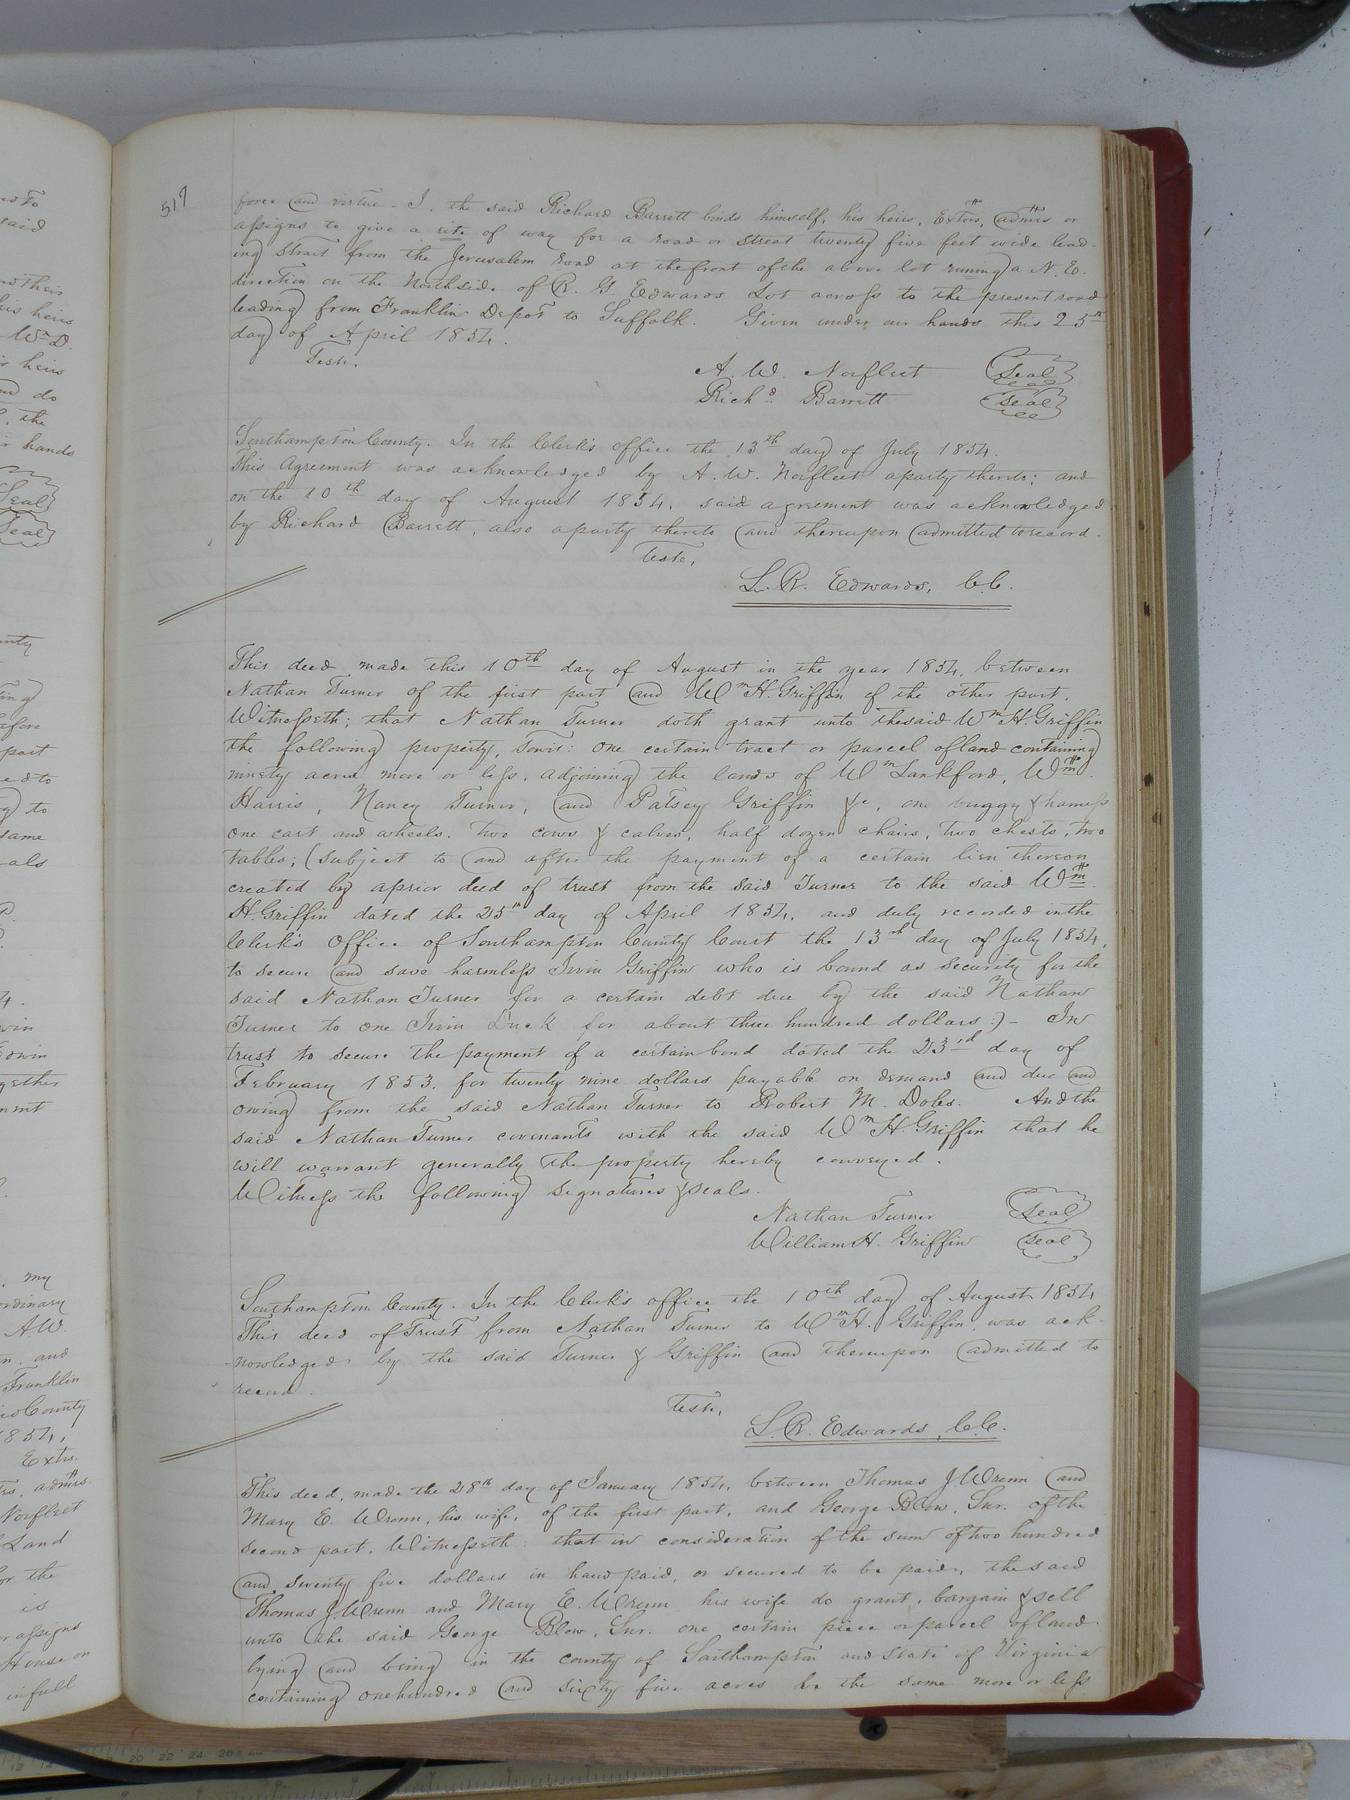 517
force and virtue. I, the said Richard Barrett binds himself, his heirs, Extors, admrs or
assigns to give a rite of way for a road or street twenty five feet wide lead-
ing strait from the Jerusalem road at the front of the above lot runing a N. E.
direction on the Northside of R. G Edwards Lot across to the present road
leading from Franklin Depot to Suffolk. Given under our hands this 25th
day of April 1854.
Test.
A. W. Norfleet Seal
Richd Barrett Seal
Southampton County. In the Clerk's office the 13th day of July 1854.
This Agreement was acknowledged by A. W. Norfleet a party thereto; and
on the 10th day of August 1854, said agreement was acknowledged
by Richard Barrett, also a party thereto and thereupon admitted to record.
Teste,
L. R. Edwards, C.C.
This deed made this 10th day of August in the year 1854, between
Nathan Turner of the first part and Wm H. Griffin of the other part.
Witnesseth; that Nathan Turner doth grant unto the said Wm H. Griffin
the following property, towit: one certain tract or parcel of land containing
ninety acres more or less, adjoining the lands of Wm Lankford, Wm
Harris, Nancy Turner, and Patsey Griffin &c, one buggy & harness
one cart and wheels, two cows & calves, half dozen chairs, two chests, two
tables; (subject to and after the payment of a certain lien thereon
created by a prior deed of trust from the said Turner to the said Wm
H. Griffin dated the 25th day of April 1854, and duly recorded in the
Clerk's Office of Southampton County Court the 13th day of July 1854,
to secure and save harmless Irvin Griffin who is bound as security for the
said Nathan Turner for a certain debt due by the said Nathan
Turner to one Irvin Duck for about three hundred dollars:)- In
trust to secure the payment of a certain bond dated the 23rd day of
February 1853, for twenty nine dollars payable on demand and due and
owing from the said Nathan Turner to Robert M. Doles. And the
said Nathan Turner covenants with the said Wm H. Griffin that he
will warrant generally the property hereby conveyed.
Witness the following signatures & seals.
Nathan Turner Seal
William H. Griffin Seal
Southampton County. In the Clerk's office the 10th day of August 1854
This deed of Trust from Nathan Turner to Wm H. Griffin was ack-
nowledged by the said Turner & Griffin and thereupon admitted to
record.
Teste,
L. R. Edwards, C.C.
This deed, made the 28th day of January 1854, between Thomas J Wrenn and
Mary E. Wrenn, his wife, of the first part, and George Blow, Snr. of the
second part, Witnesseth: that in consideration of the sum of two hundred
and seventy five dollars in hand paid, or secured to be paid, the said
Thomas J. Wrenn and Mary E. Wrenn his wife do grant, bargain & sell
unto the said George Blow, Snr. one certain piece or parcel of land
lying and being in the county of Southampton and State of Virginia
containing one hundred and sixty five acres be the same more or less